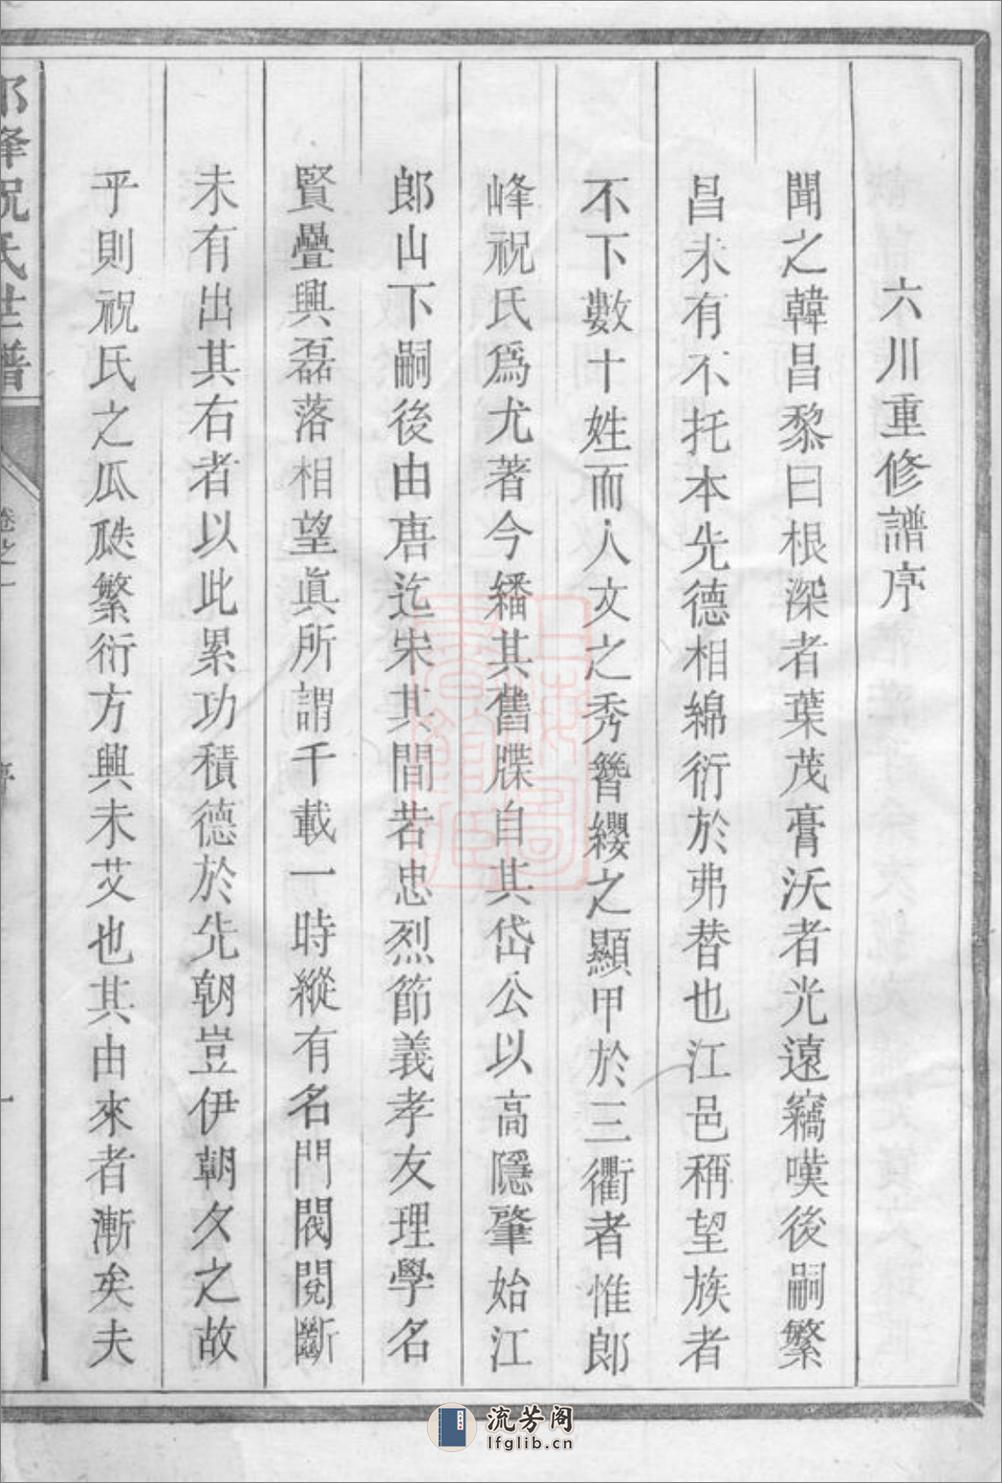 六川重修譜序
聞之韓昌黎曰根深者葉茂膏沃者光遠竊嘆後嗣繁
昌未有不托本先德相綿衍於弗替也江邑稱望族者
不下數十姓而人文之秀簪纓之顯甲於三衢者惟郎
峰祝氏爲尤著今繙其舊牒自其岱公以高隱肇始江
郎山下嗣後由唐迄宋其間若忠烈節義孝友理學名
賢疊興磊落相望眞所謂千載一時縱有名門閥閱斷
未有出其右者以此累功積德於先朝豈伊朝夕之故
乎則祝氏之瓜瓞繁衍方興未艾也其由來者漸矣夫
郎峰祝氏世譜
卷之一
序
一
流芳阁
lfglib.cn